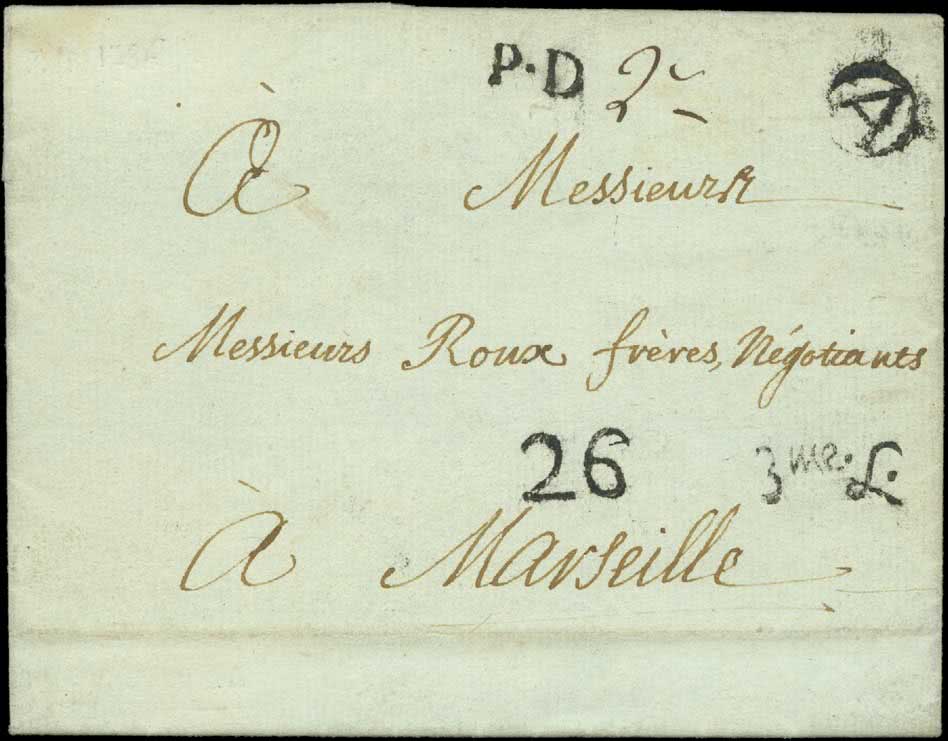 P·D 2 A
À Messieurs
Messieurs Roux frères, Négotiants
26 3me. L.
à Marseille